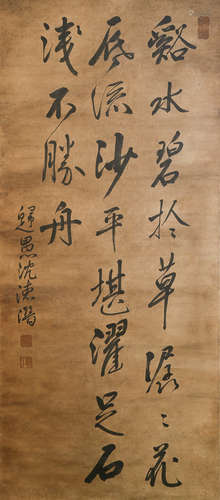 谿水碧於草潺潺花
底流沙平堪濯足石
淺不勝舟
歸愚沈德潛